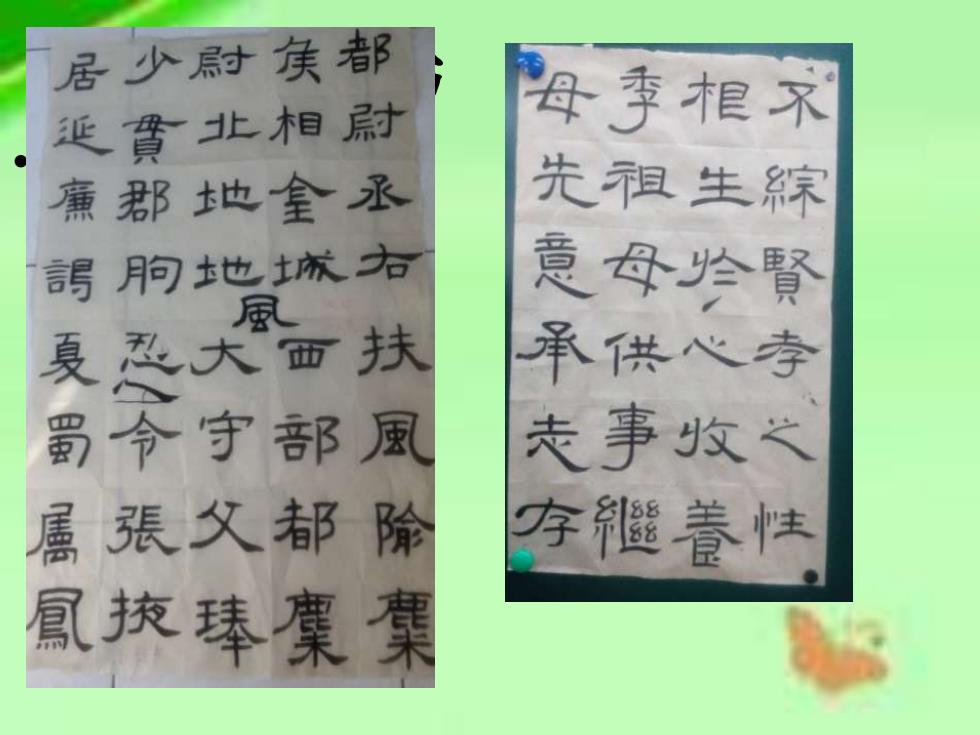 都尉丞右扶風隃麋
侯相金城西部都麋
尉北地地大守父琫
風
少貫郡朐忍令張掖
居延廉謁夏蜀屬鳳
不綜賢孝之性
根生於心收養
季祖母供事繼
母先意承志存